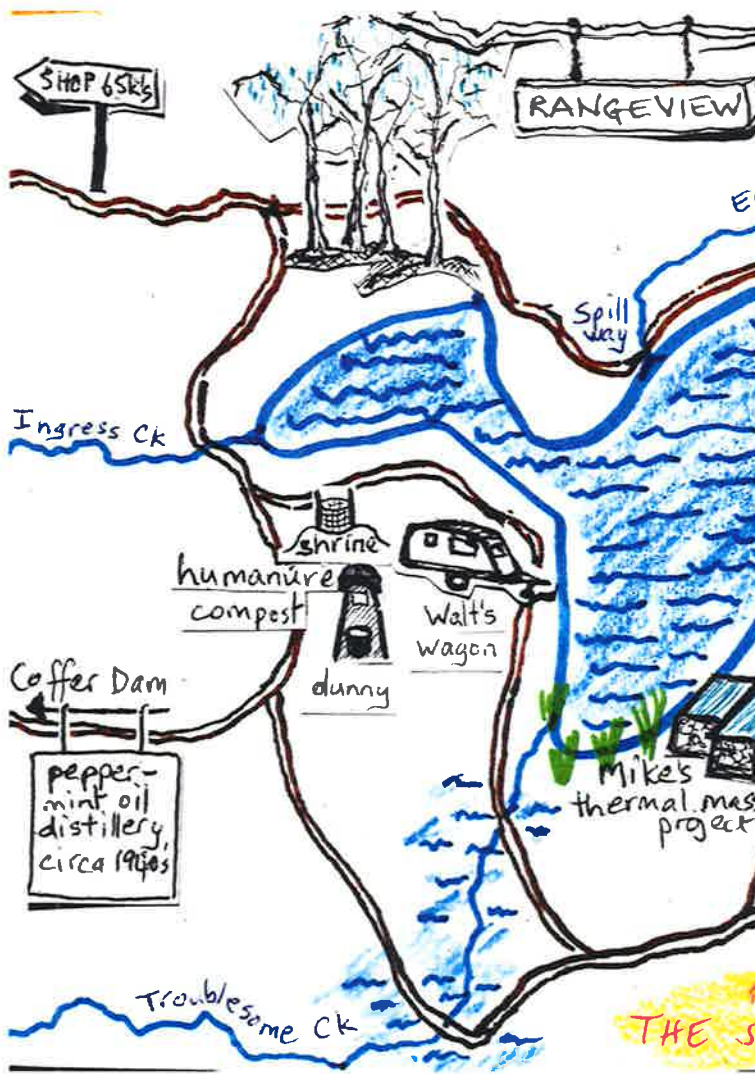 SHOP 65k's
RANGEVIEW
Spill
way
Ingress Ck
shrine
humanure
compost
Walt's
wagon
dunny
Coffer Dam
pepper-
mint oil
distillery,
circa 1940s
Mike's
thermal mas
project
Troublesome Ck
THE S